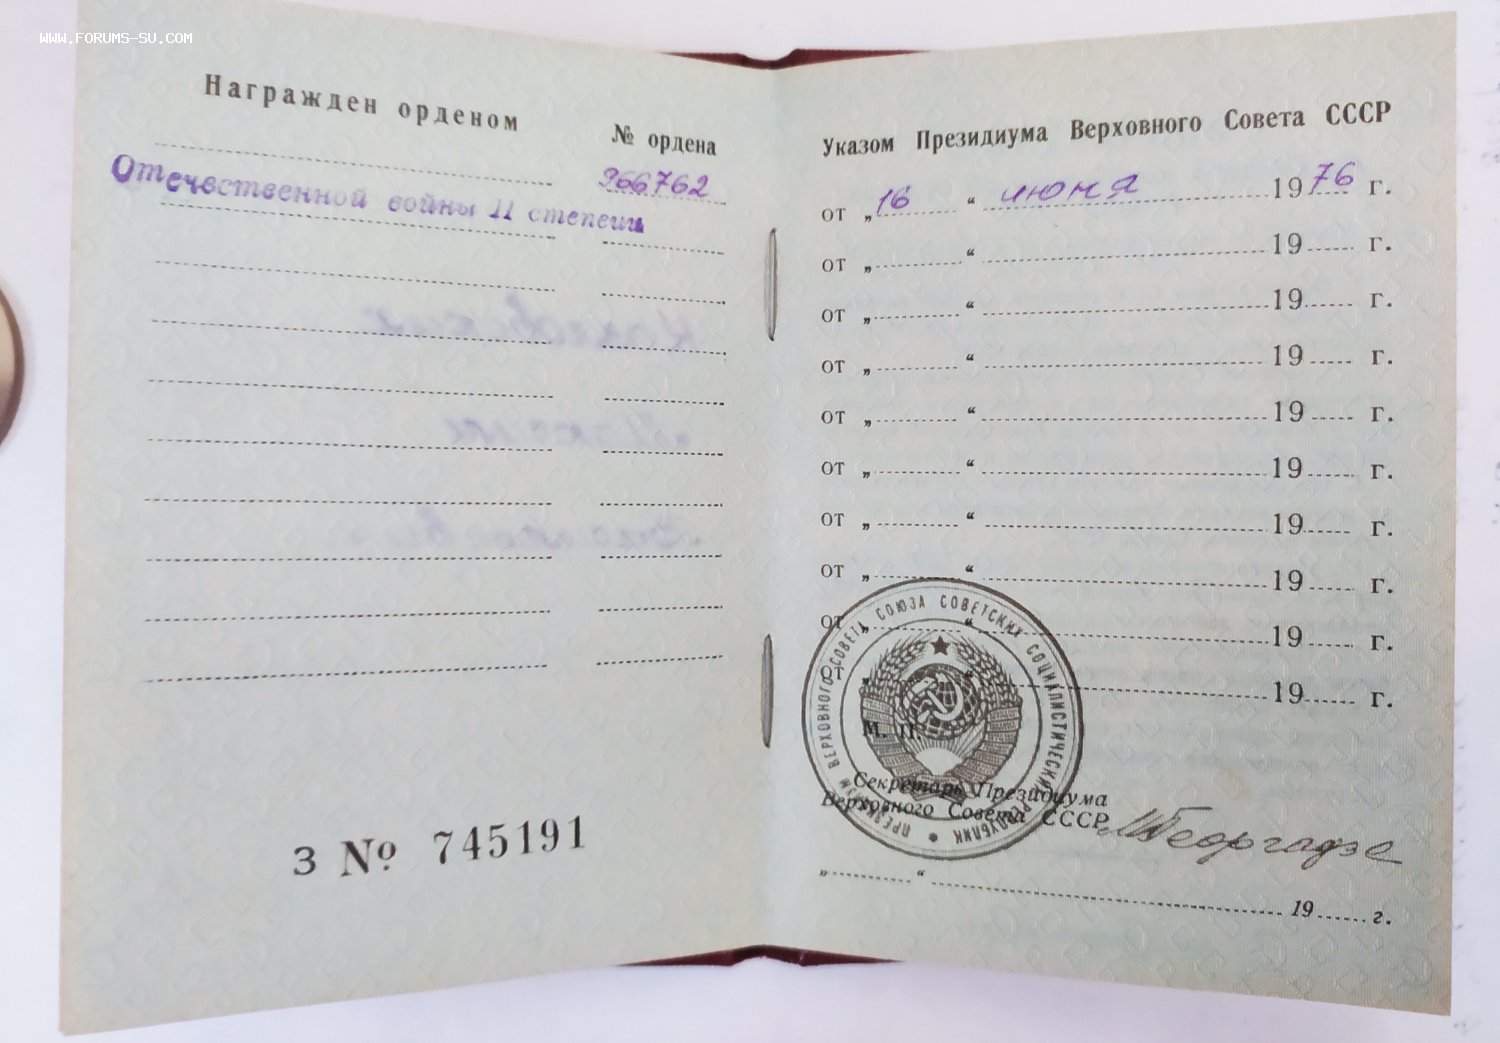 WWW.FORUMS-SU.COM
Награжден орденом
№ ордена
Отечественной войны II степени
966762
З № 745191
Указом Президиума Верховного Совета СССР
от „ 16 “ июня 1976 г.
от „ “ 19 г.
от „ “ 19 г.
от „ “ 19 г.
от „ “ 19 г.
от „ “ 19 г.
от „ “ 19 г.
от „ “ 19 г.
от „ “ 19 г.
от „ “ 19 г.
М. П.
ПРЕЗИДИУМ ВЕРХОВНОГО СОВЕТА СОЮЗА СОВЕТСКИХ СОЦИАЛИСТИЧЕСКИХ РЕСПУБЛИК
Секретарь Президиума
Верховного Совета СССР
МГеоргадзе
„ “ 19 г.